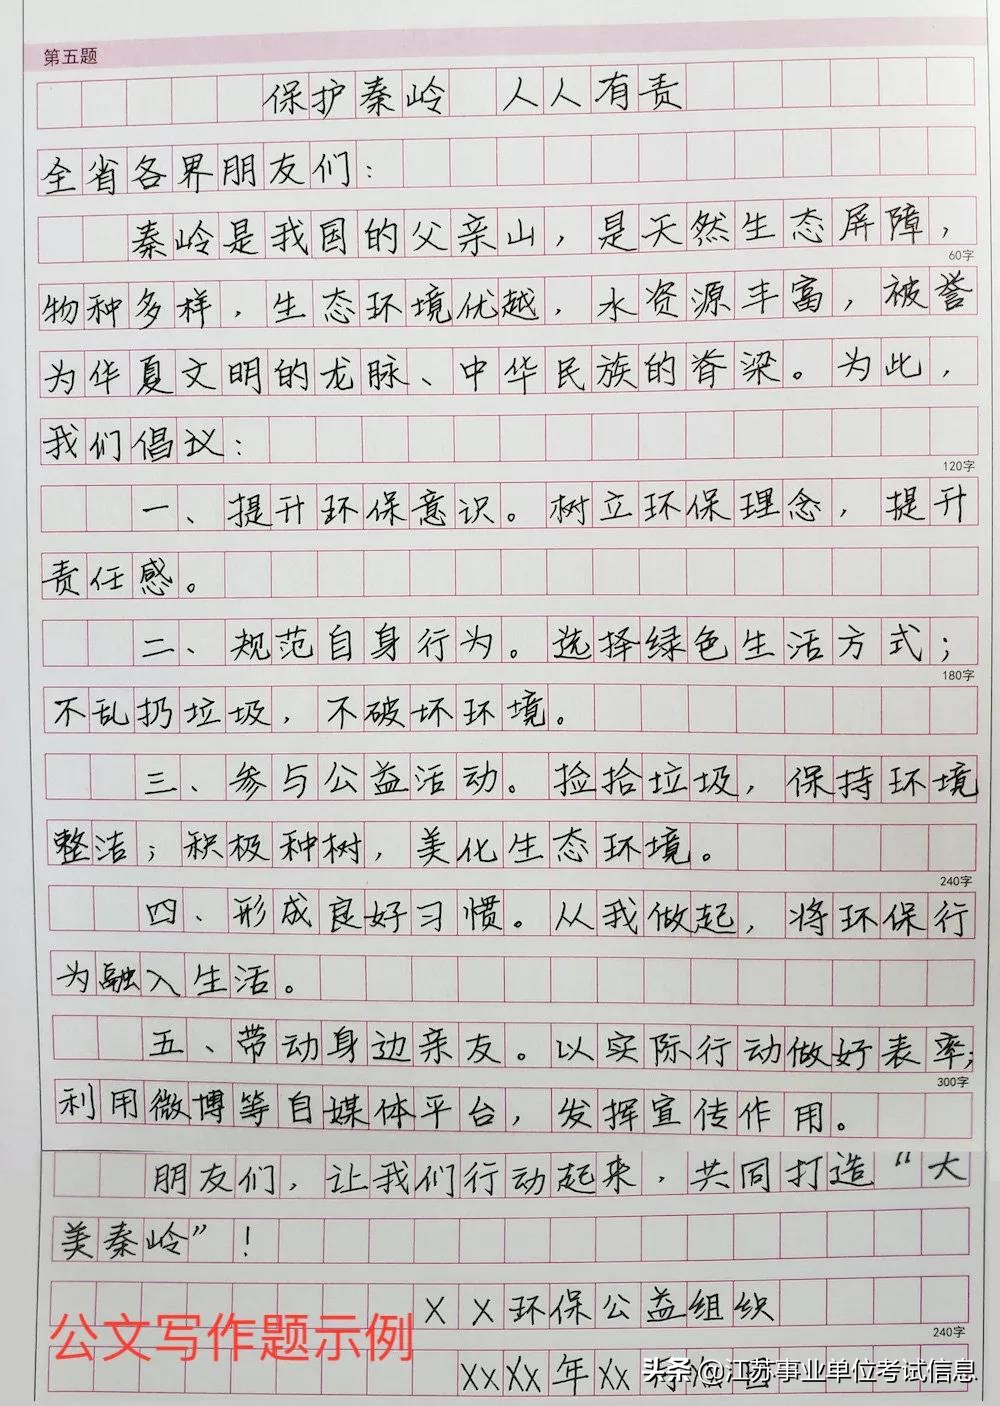 第五题
保护秦岭 人人有责
全省各界朋友们：
秦岭是我国的父亲山，是天然生态屏障，
60字
物种多样，生态环境优越，水资源丰富，被誉
为华夏文明的龙脉、中华民族的脊梁。为此，
我们倡议：
120字
一、提升环保意识。树立环保理念，提升
责任感。
二、规范自身行为。选择绿色生活方式；
180字
不乱扔垃圾，不破坏环境。
三、参与公益活动。捡拾垃圾，保持环境
整洁；积极种树，美化生态环境。
240字
四、形成良好习惯。从我做起，将环保行
为融入生活。
五、带动身边亲友。以实际行动做好表率；
300字
利用微博等自媒体平台，发挥宣传作用。
朋友们，让我们行动起来，共同打造“大
美秦岭”！
XX环保公益组织
公文写作题示例
240字
XXXX年XX
头条 @江苏事业单位考试信息